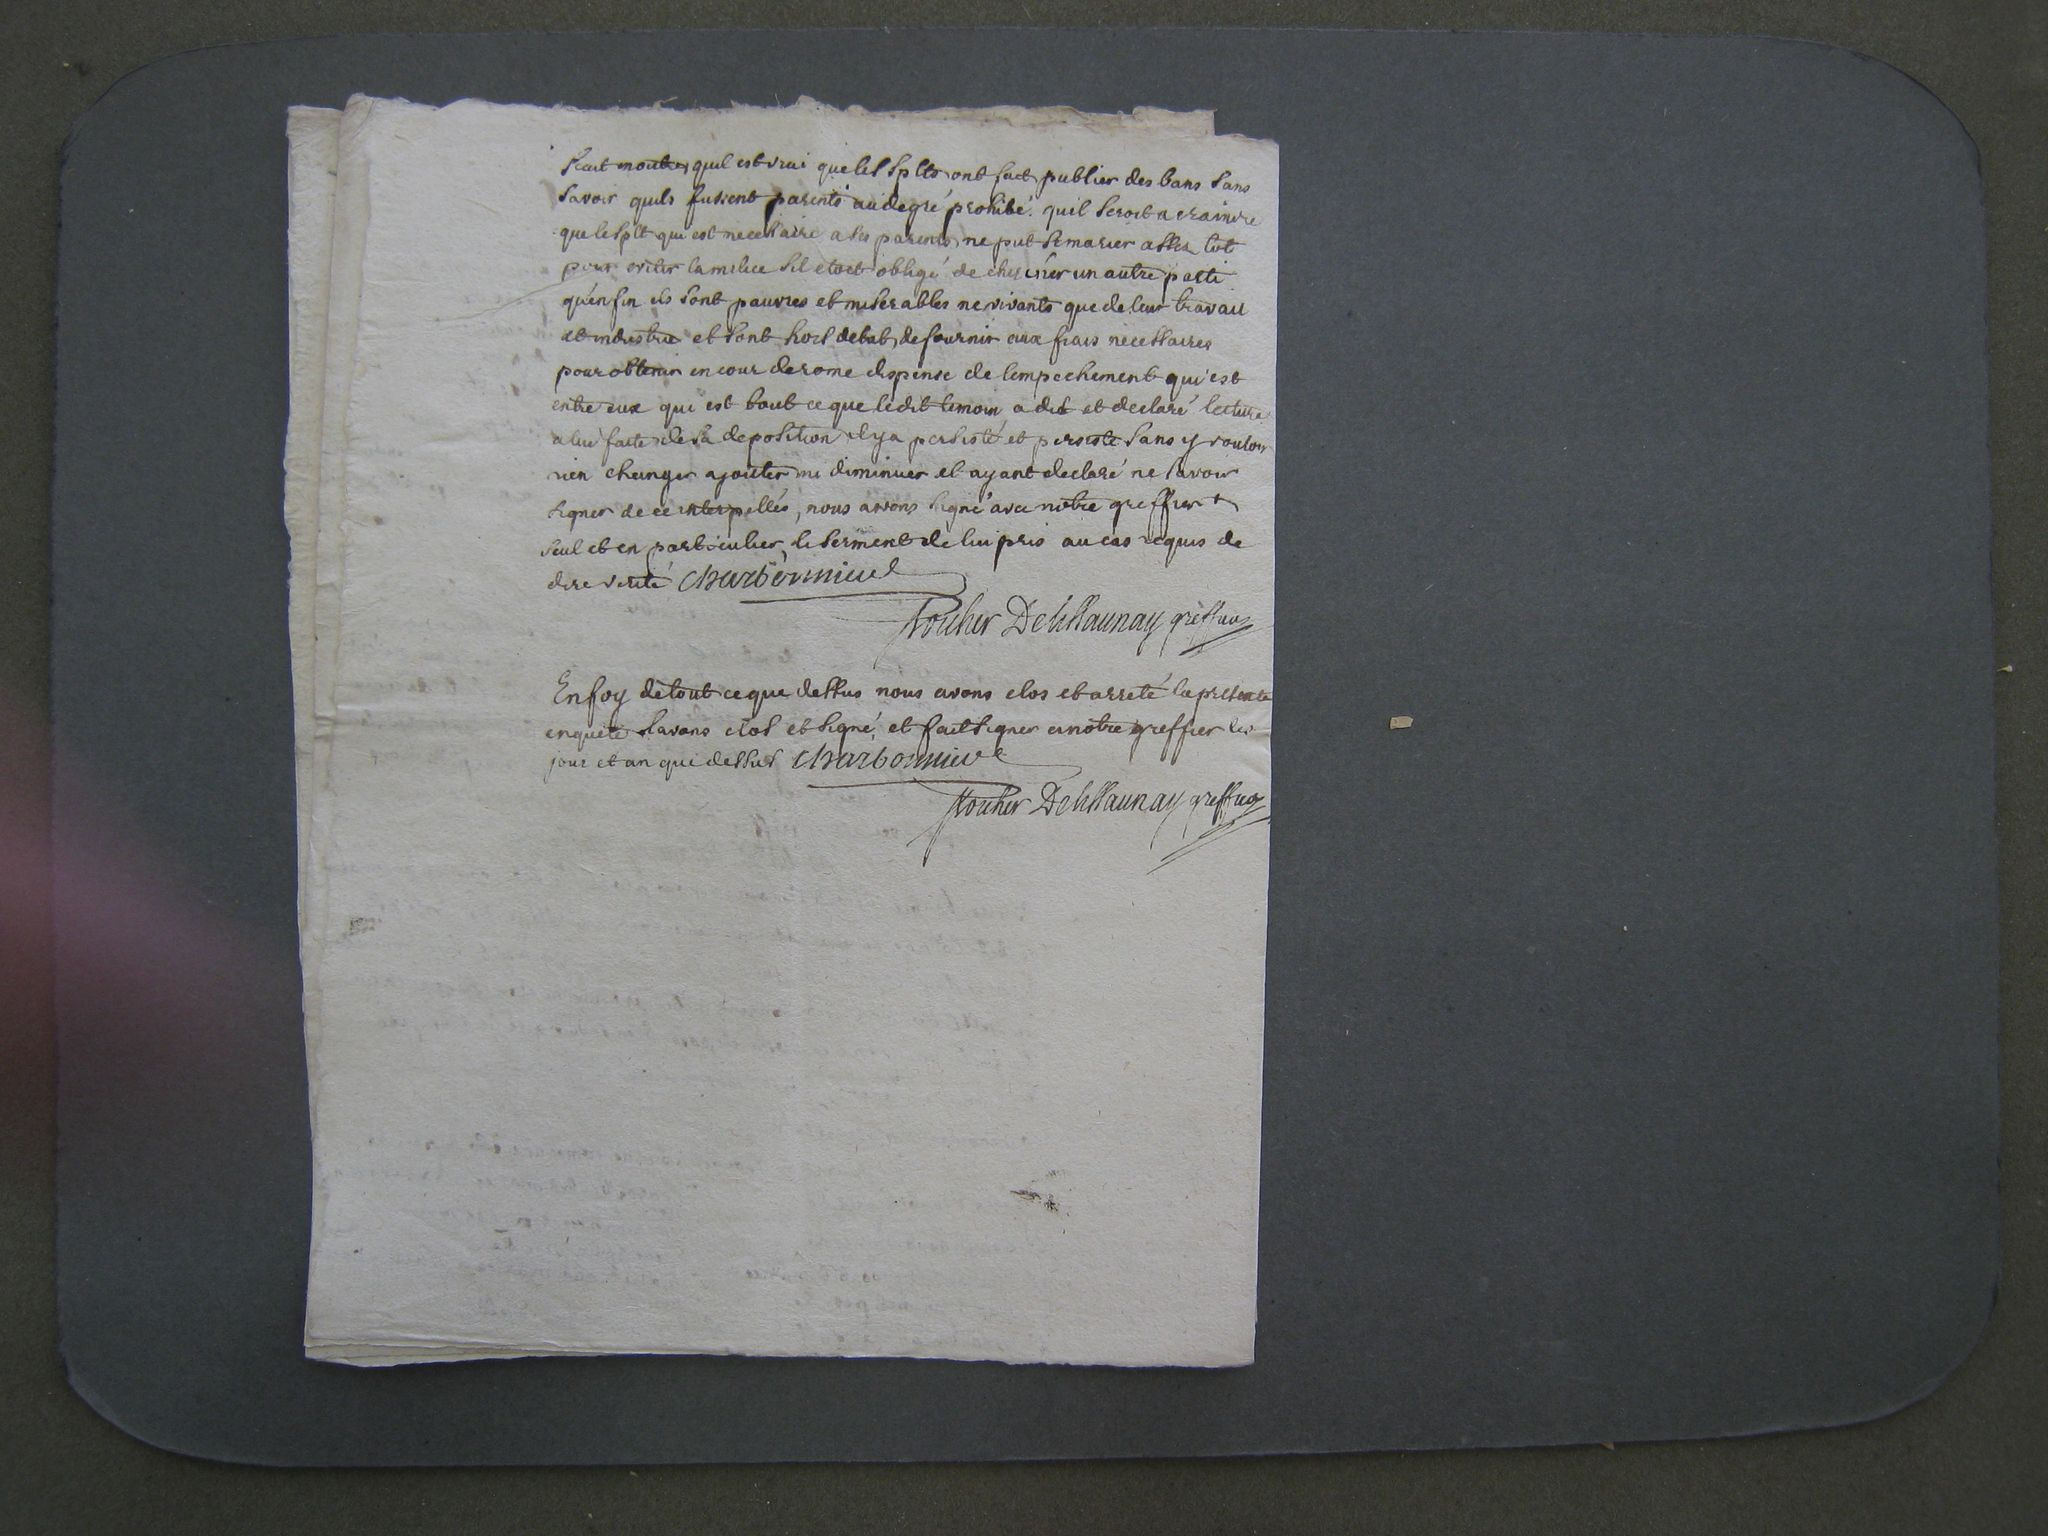 scait en outre quil est vrai que les splts ont fait publier des bans sans
savoir quils fussent parents au degré prohibé. quil seroit a craindre
que le splt qui est necessaire a ses parents ne put se marier assez tot
pour eviter la milice sil etoit obligé de chercher un autre parti
qu'enfin ils sont pauvres et miserables ne vivants que de leur travail
et industrie et sont hors detat de fournir aux frais necessaires
pour obtenir en cour de rome dispense de lempechement qui est
entre eux qui est tout ce que ledit temoin a dit et declaré lecture
a lui faite de sa deposition il y a persisté et persiste sans y vouloir
rien changer ajouter ni diminuer et ayant declaré ne savoir
signer de ce interpellés, nous avons signé avec notre greffier +
seul et en particulier, le serment de lui pris au cas requis de
dire verité Charbonnieul
De greffier
En foy de tout ce que dessus nous avons clos et arreté la presente
enquete lavons clos et signé, et fait signer a notre greffier les
jour et an que dessus Charbonnieul
De greffier